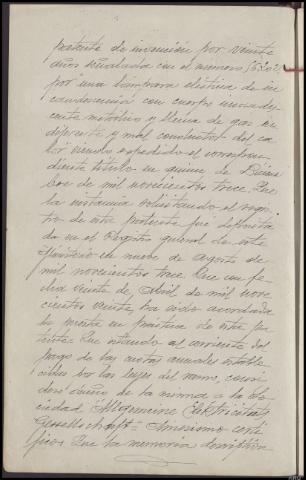 patente de invención por veinte
años señalada con el número 56202
por una lámpara eléctrica de in
candescencia con cuerpo incandes
cente metálico y llena de gas in
diferente y mal conductor del ca
lor siendo expedido el correspon
diente título en quince de Diciem
bre de mil novecientos trece. Que
la instancia solicitando el regis
tro de esta patente fué deposita
da en el Registro general de este
Ministerio en nueve de Agosto de
mil novecientos trece. Que con fe
cha veinte de Abril de mil nove
cientos veinte, ha sido acordada
la puesta en práctica de esta pa
tente. Que estando al corriente del
pago de las cuotas anuales estable
cidas por las leyes del ramo, consi
deró dueño de la misma a la So
ciedad Allgemeine Elektricitats
Gesellschaft. Asimismo certi
fico: Que la memoria descriptiva